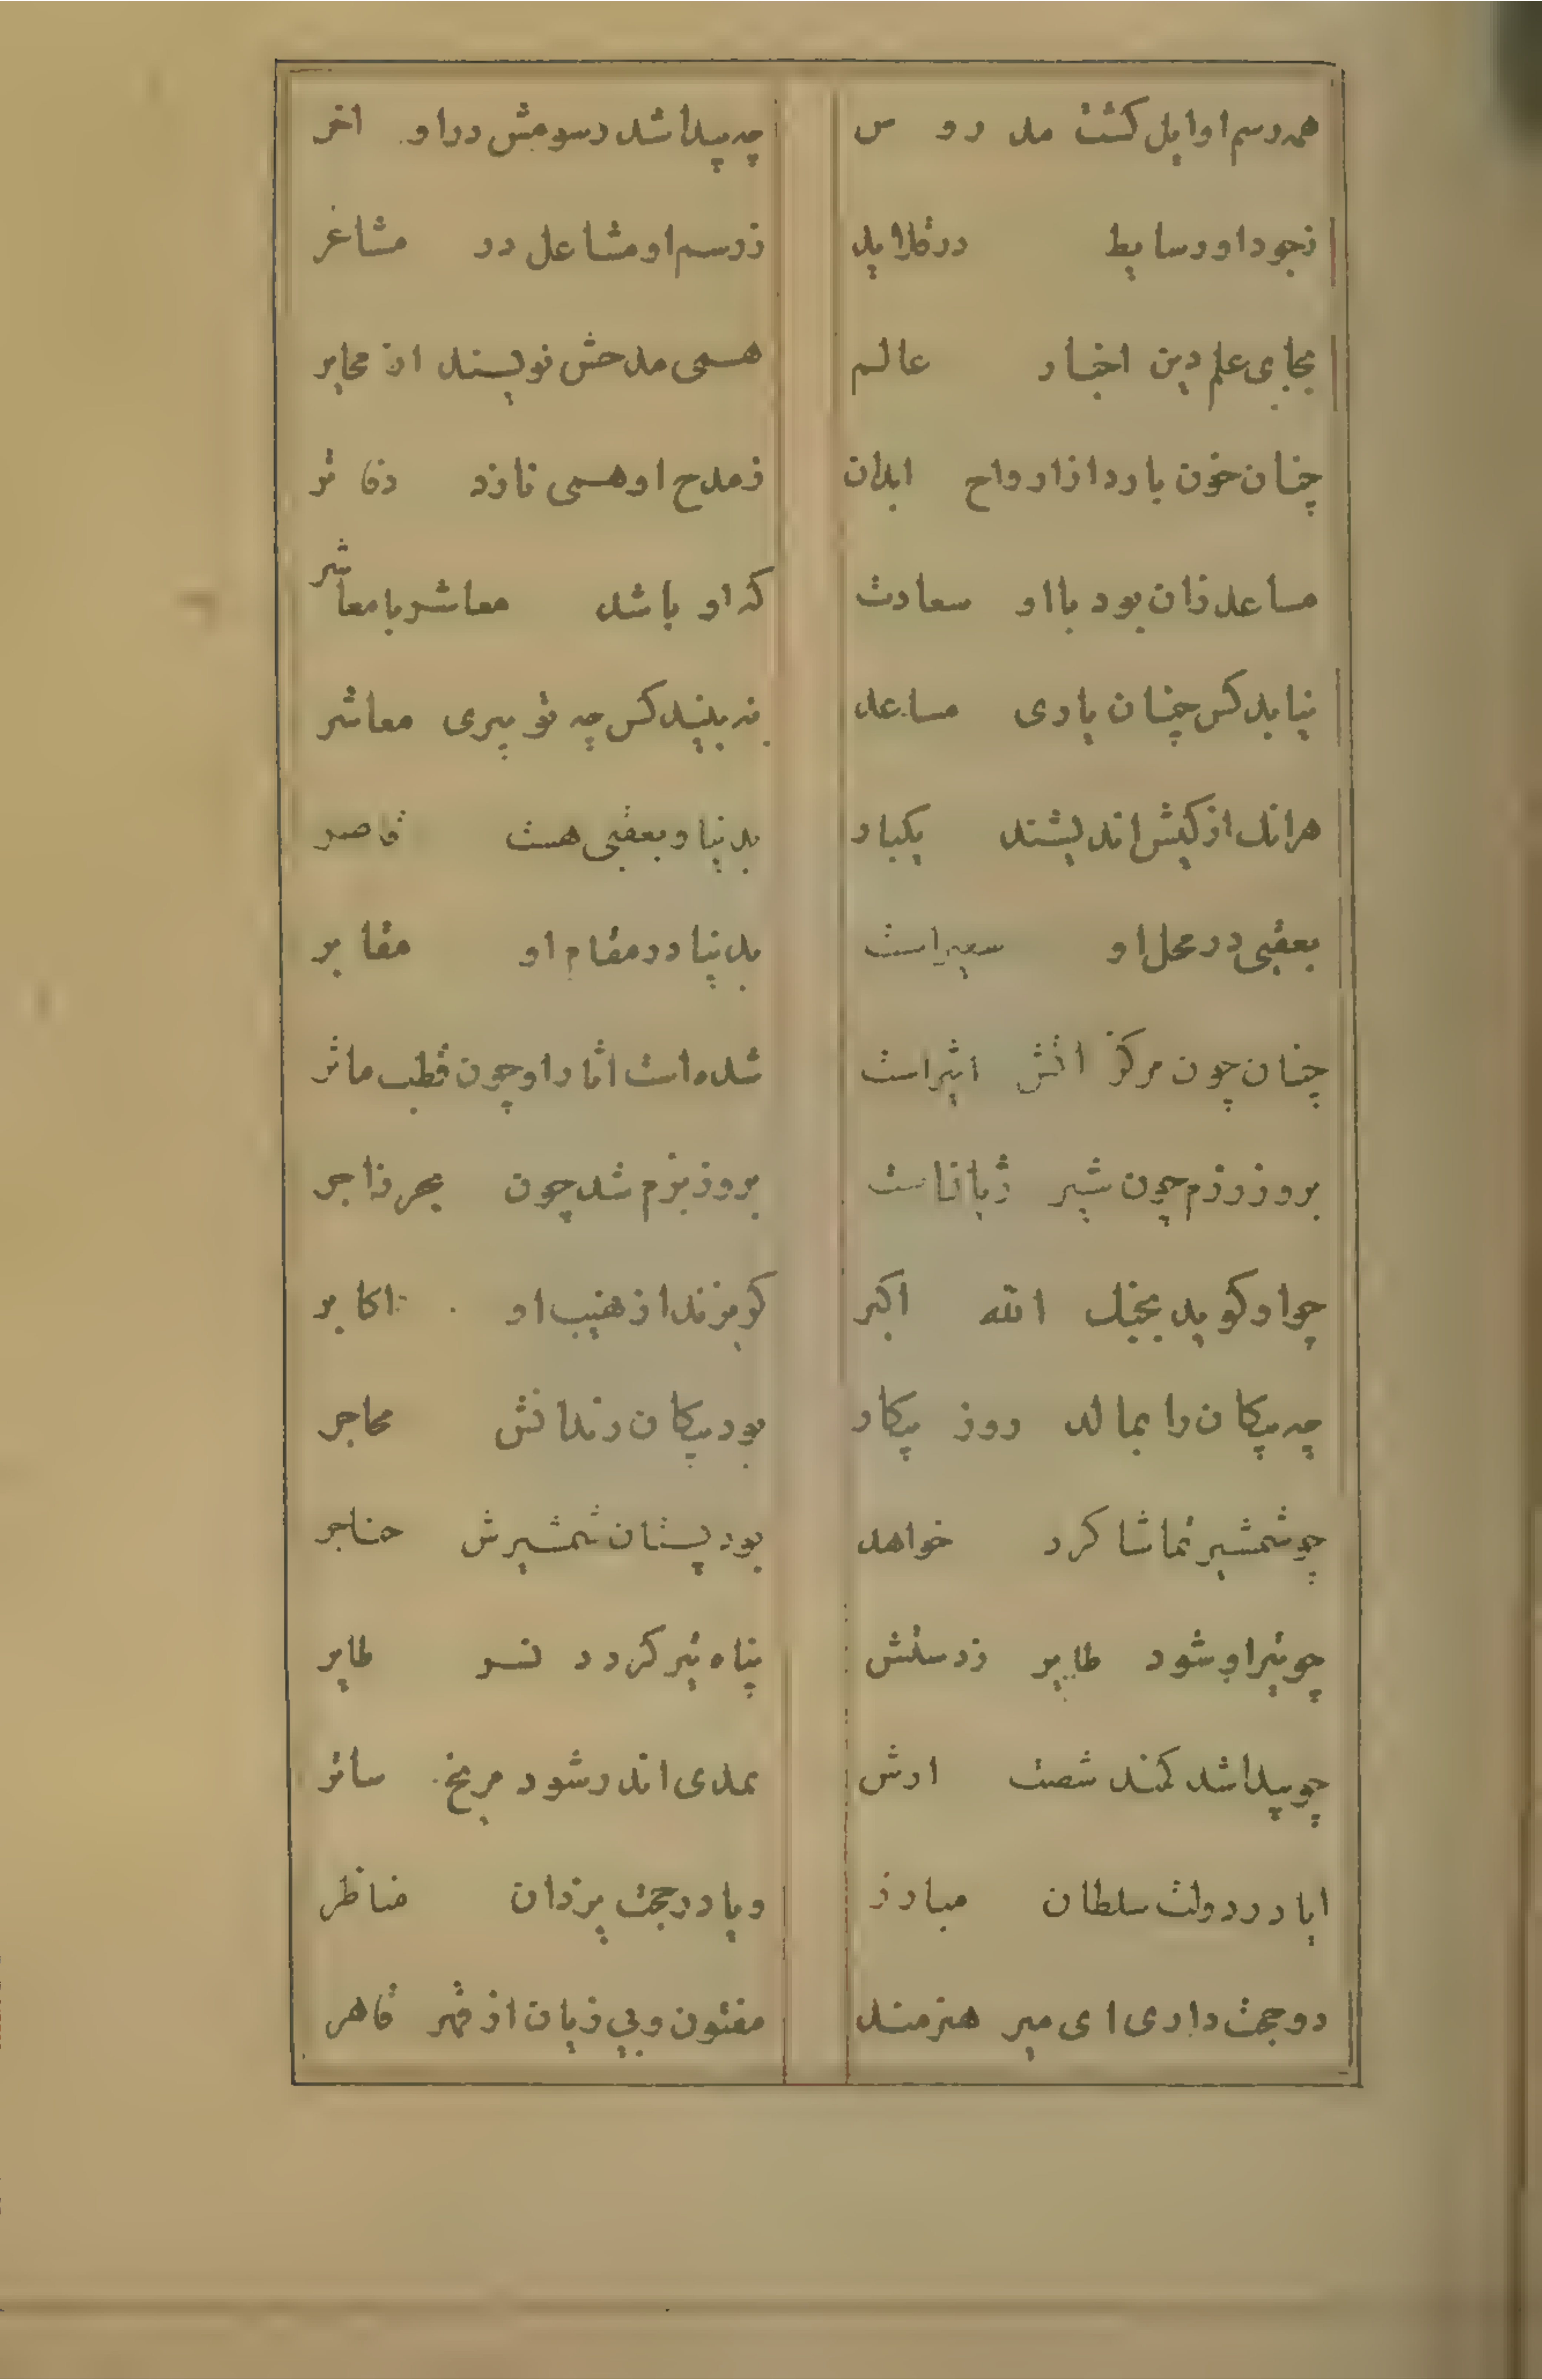 همه رسم اوایل کشت مد رو س چه پیدا شد رسومش در او اخر
زجود او وسایط در قلاید زرسم او مشاعل در مشاغر
بجای علم دین اخبار عالم همی مدحش نویسند از محابر
چنان خون بارد از ارواح ابدان زمدح او همی نازد دفاتر
مساعد زان بود با او سعادت که او باشد معاشر با معاشر
نیابد کس چنان یاری مساعد نه بیند کس چه تو پیری معاشر
هرانک از کیش اندیشند یکبار بدنیا و بعقبی هست قاصر
بعقبی در محل او سعیر است بدنیا در مقام او مقابر
چنان چون مرکز اتش اثیر است شده است اثار او چون قطب ماثر
بروز رزم چون شیر ژیانست بروز بزم شد چون بحر زاجر
چو او کوید بجنک الله اکبر کریزند از نهیب او اکابر
چه پیکان را بمالد روز پیکار بود پیکان دندانش محاجر
چو شمشیر تماشا کرد خواهد بود پستان شمشیرش حناجر
چو تیر او شود طایر زدستش پناه تیر کردد نسر طایر
چو پیدا شد کمند شصت ارش بمدی اندر شود مریخ ساتر
ایا در دولت سلطان مبارز و یا در حجت یزدان مناظر
دو حجت داری ای میر هنرمند مفتون و بی زیان از قهر قاهر